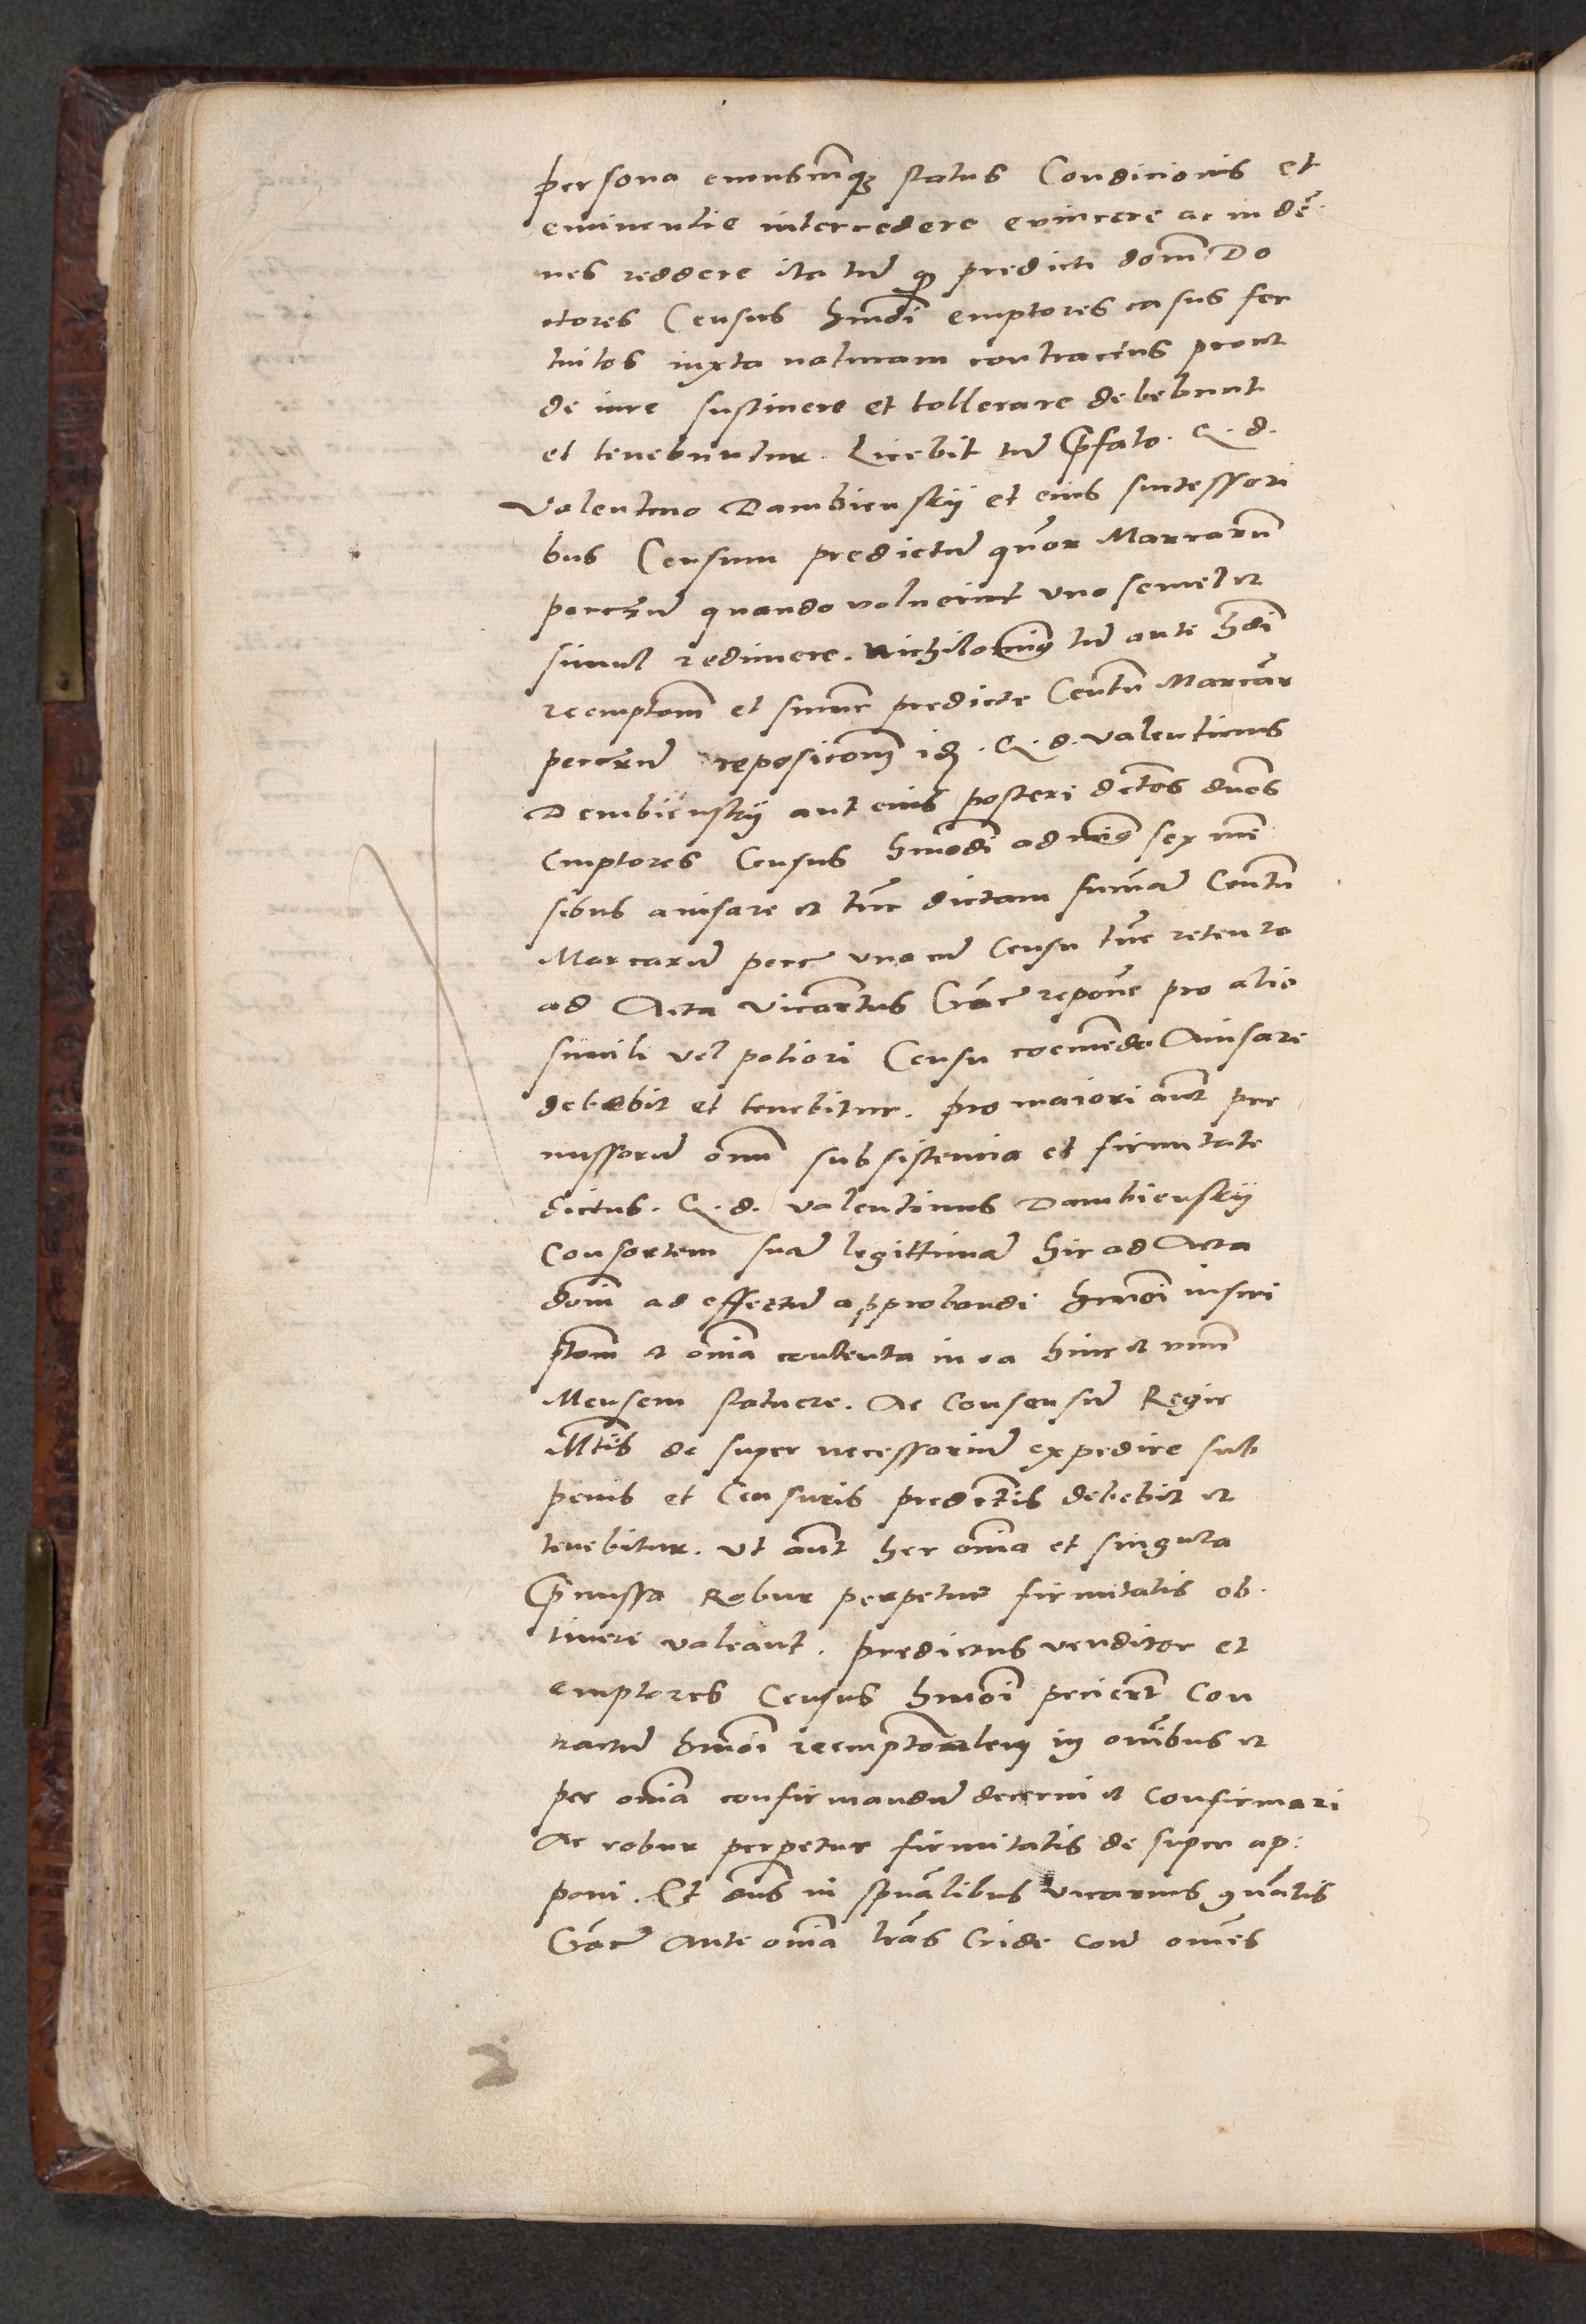 persona cuiusmqȝ status Condicionis et
eminentie intercedere evincere ac in dē
nes reddere ita tn̄ qȝ predicti dom̄ Do
ctores Census hm̄oi emptores casus for
tuitos iuxta naturam contractus prout
de iure sustinere et tollerare debebunt
et tenebuntur. Licebit tn̄ p̄fato. G. d.
Valentino Dambiensky et eius successori
bus Censum predictū quōr Marcarū
pecc̄ū quando voluerint uno semel et
simul redimere. Nichilominꝰ tn̄ ante hm̄oi
reemptōm̄ et summe predicte Centū Marcār
pecc̄ū reposicōm̄ idē. G. d. Valentinus
Dembiensky aut eius posteri dc̄tos dnōs
Emptores Census hm̄odi ad minꝰ sex mē
sibus avisare et tūc dictam summā Centū
Marcarū pecc̄ una cū Censu tūc retento
ad Acta Vicariatus Grac̄ repone pro alio
simili vel potiori Censu coemēdo Avisare
debebit et tenebitur. Pro maiori aūt pre
missorū om̄i subsistencia et firmitate
dictus. G. d. Valentinus Dambiensky
Consortem suā legittimā hic ad Acta
dom̄ ad effectū approbandi hm̄oi inscri
ptōm̄ et om̄ia contenta in ea hinc et unū
Mensem statuere. Ac Consensū Regie
Mtīs de super necessariū expedire sub
penis et Censuris predc̄tis debebit et
tenebitur. Ut aūt hec om̄ia et singula
p̄missa Robur perpetue firmitatis ob
tinere valeant. Predictus venditor et
emptores Census hm̄oi pecierūt Con
tractū hm̄oi reemptōnalem in om̄ibus et
per om̄ia confirmandū decerni et Confirmari
Ac robur perpetue firmitatis de super ap:
poni. Et dn̄s in spūalibus Vicarius gn̄alis
Grac̄ Ante om̄ia lrās Cride corā om̄es